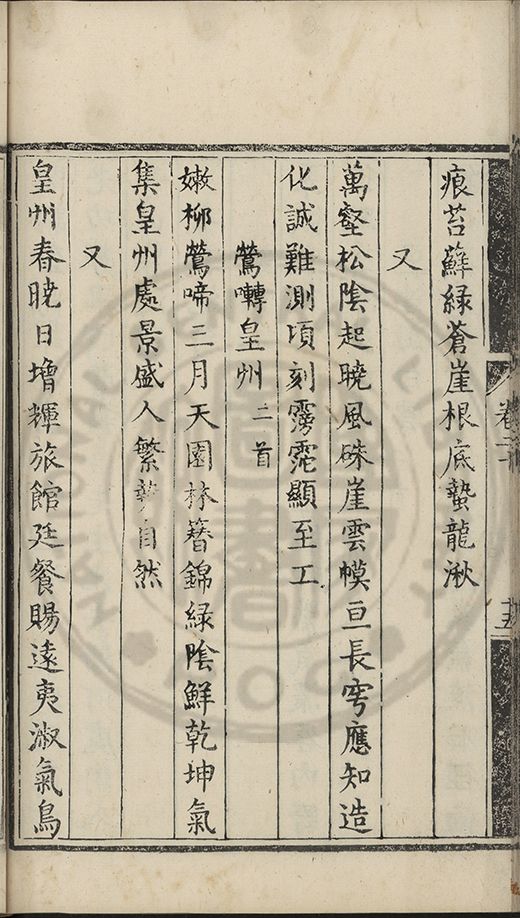 痕苔蘚緑蒼崖根底蟄龍湫
又
萬壑松陰起曉風硃崖雲幙亘長穹應知造
化誠難測頃刻霶霓顯至工
鶯囀皇州二首
嫩柳鶯啼三月天園林簪錦緑陰鮮乾坤氣
集皇州處景盛人繁自然
又
皇州春曉日增輝旅館廷餐賜遠夷淑氣鳥